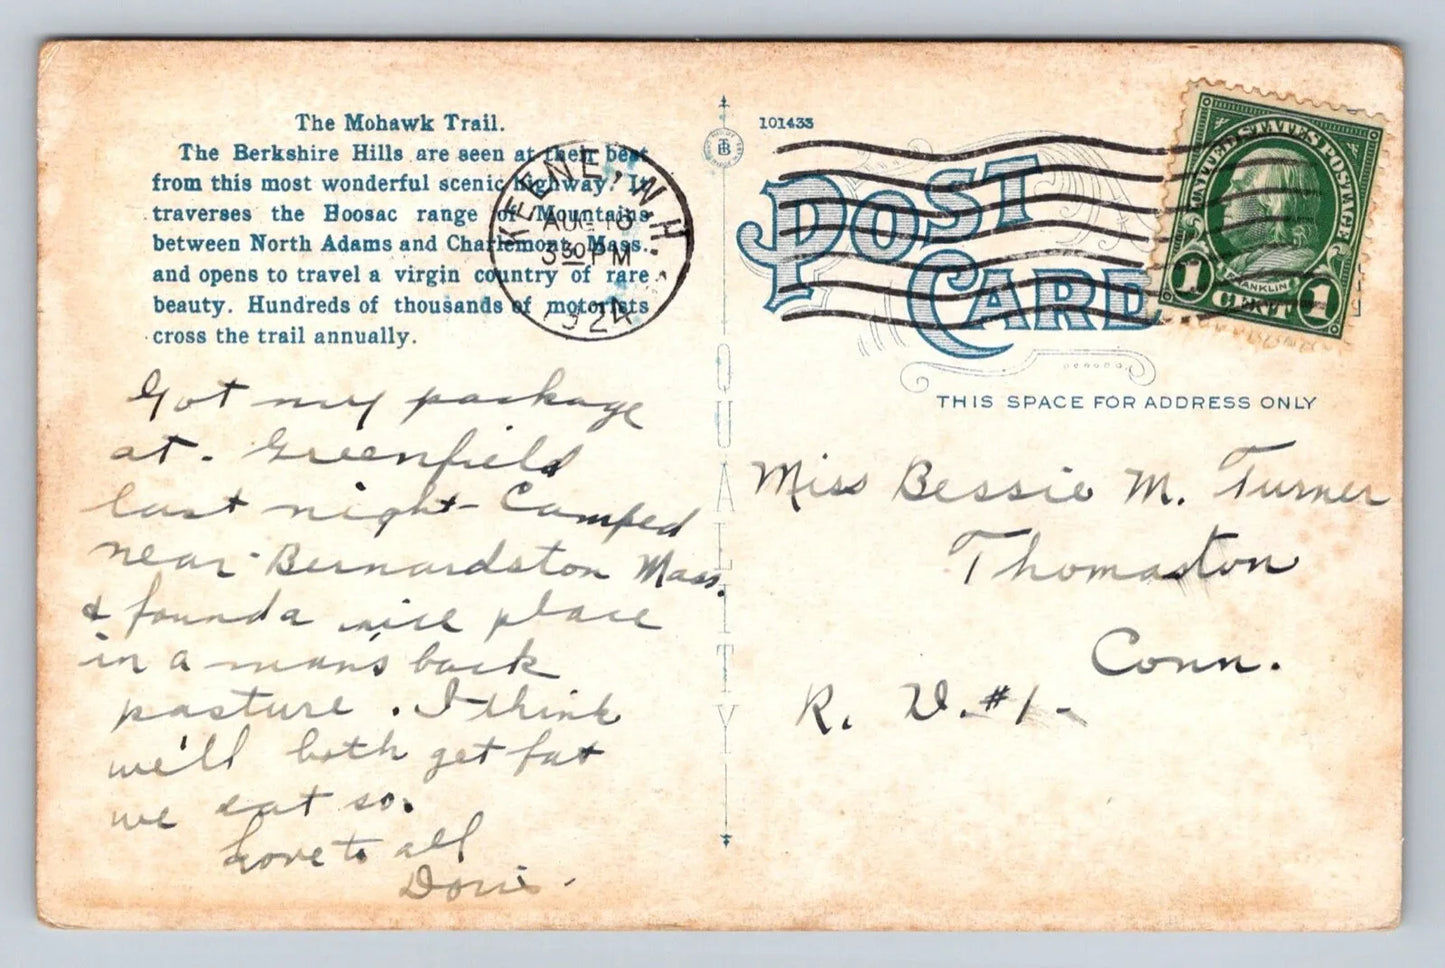 The Mohawk Trail.
The Berkshire Hills are seen at their best
from this most wonderful scenic highway. It
traverses the Hoosac range of Mountains
between North Adams and Charlemont, Mass.
and opens to travel a virgin country of rare
beauty. Hundreds of thousands of motorists
cross the trail annually.
KEENE, N.H.
AUG 16
5 30 PM
1924
Got my package
at. Greenfield
last night - Camped
near Bernardston Mass.
& found a nice place
in a man's back
pasture. I think
we'll both get fat
we eat so.
Love to all
Doris.
QUALITY
TB
101433
POST
CARD
UNITED STATES POSTAGE
FRANKLIN
1 CENT 1
THIS SPACE FOR ADDRESS ONLY
Miss Bessie M. Turner
Thomaston
Conn.
R. D. #1-